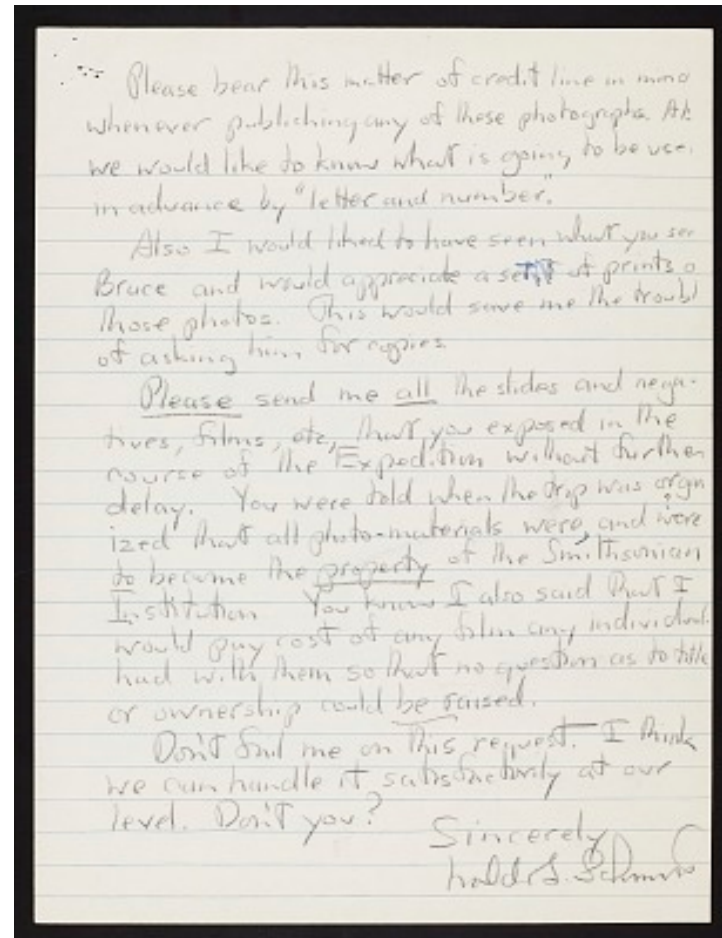 Please bear this matter of credit line in mind
whenever publiching any of these photographs. At
we would like to know what is going to be use
in advance by "letter and number."
Also I would liked to have seen what you sen
Bruce and would appreciate a set of prints o
those photos. This would save me the troubl
of asking him for copies.
Please send me all the slides and nega-
tives, films, etc, that you exposed in the
course of the Expedition without further
delay. You were told when the trip was orgn
ized that all photo-materials were, and were
to become the property of the Smithsonian
Institution You know I also said that I
would pay cost of any film any individual
had with them so that no question as to title
or ownership could be raised.
Don't fail me on this request. I think
we can handle it satisfactorily at our
level. Don't you?
Sincerely
Waldo L. Schmitt